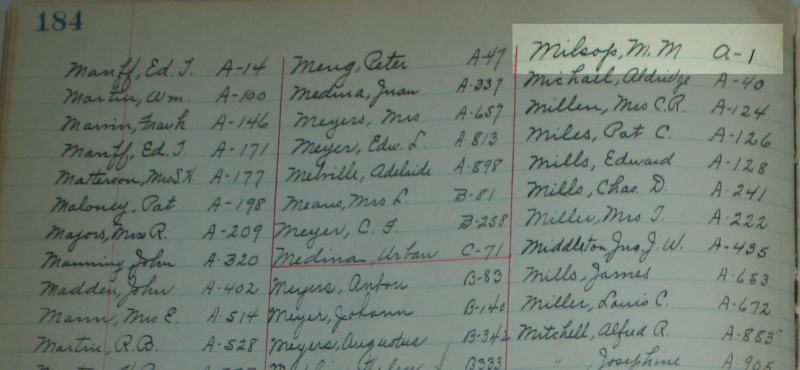 184
Manff, Ed. T. A-14
Martin, Wm. A-100
Marvin, Frank A-146
Manff, Ed. T. A-171
Matterson, Mrs S.K. A-177
Maloney, Pat A-198
Majors, Mrs R. A-209
Manning John A-320
Madden, John A-402
Mann, Mrs E. A-514
Martin, R.B. A-528
Meng, Peter A-47
Medina, Juan A-337
Meyers, Mrs A-657
Meyer, Edw. L. A-813
Melville, Adelaide A-898
Means, Mrs L. B-81
Meyer, C. F. B-258
Medina, Urban C-71
Meyers, Anton B-83
Meyer, Johann B-140
Meyers, Augustus B-342
B333
Milsop, M. M A-1
Michael, Aldridge A-40
Millen, Mrs C.R. A-124
Miles, Pat C. A-126
Mills, Edward A-128
Mills, Chas. D. A-241
Miller, Mrs T. A-222
Middleton Jno. J. W. A-435
Mills, James A-653
Miller, Louis C. A-672
Mitchell, Alfred R. A-883
" , Josephine A-905